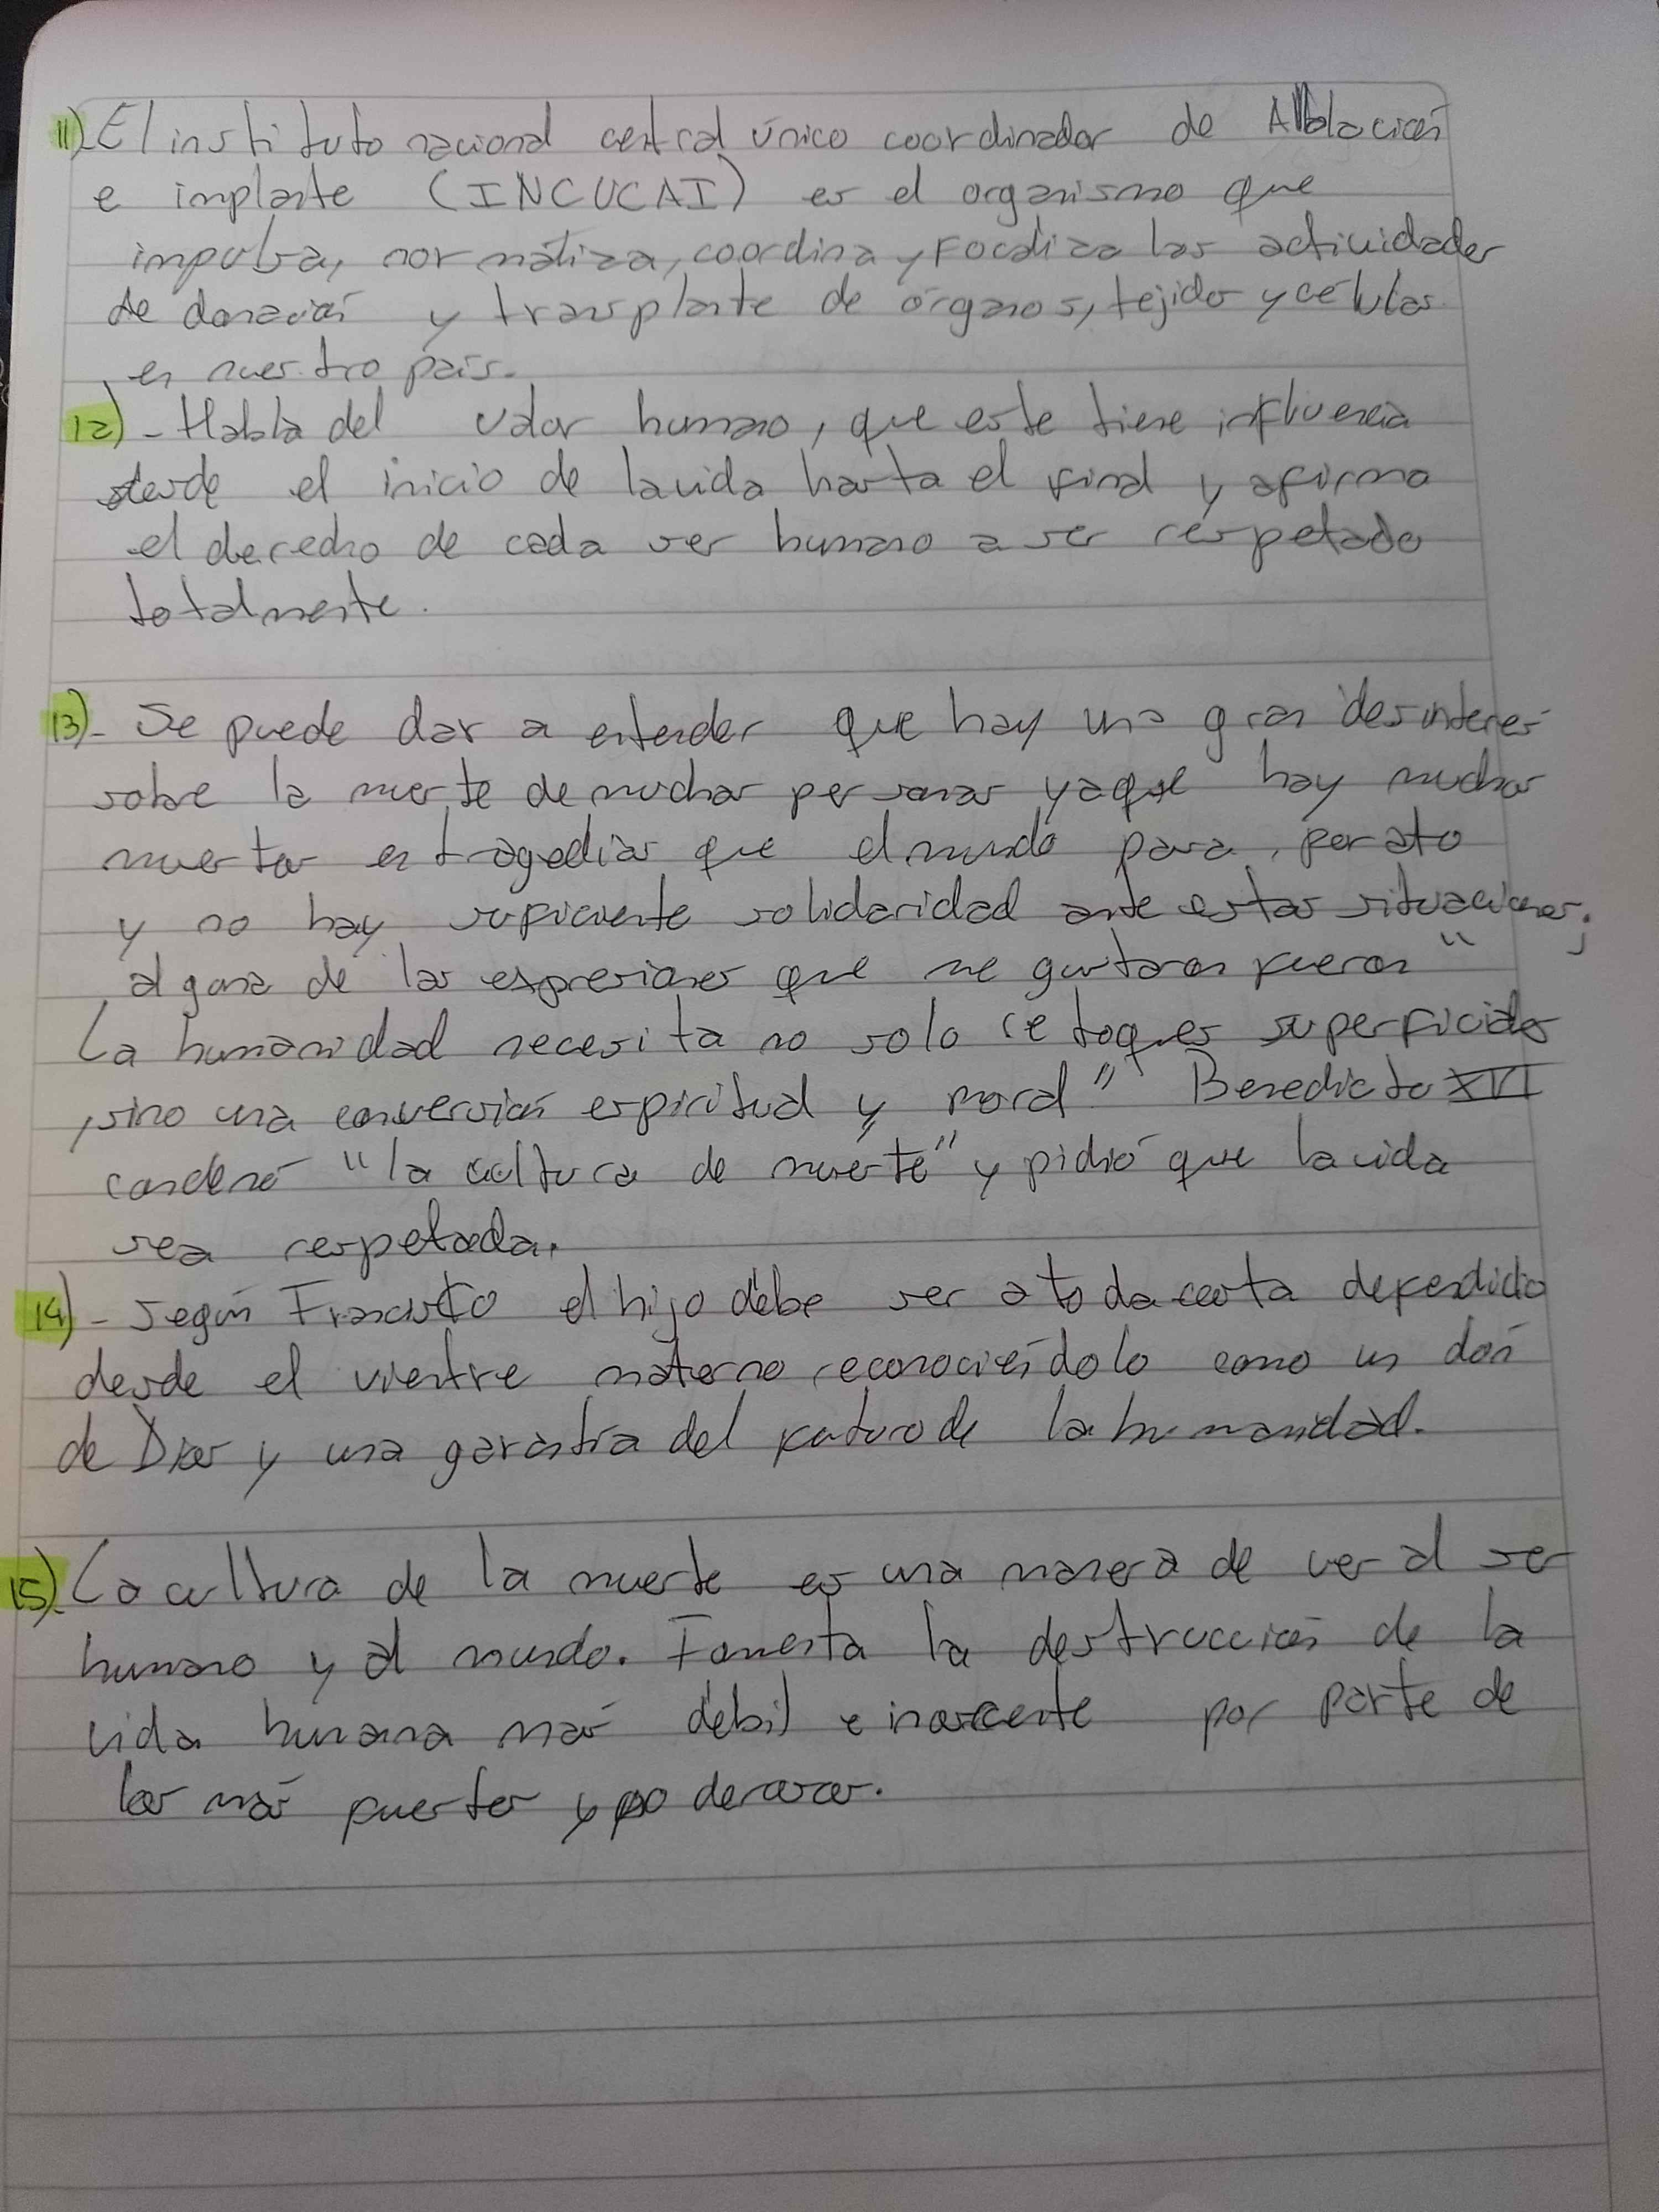 11)-El instituto nacional central único coordinador de Ablación
e implante (INCUCAI) es el organismo que
impulsa, normatiza, coordina y focaliza las actividades
de donación y transplante de órganos, tejido y células
en nuestro país.
12)-Habla del valor humano, que este tiene influencia
desde el inicio de la vida hasta el final y afirma
el derecho de cada ser humano a ser respetado
totalmente.
13)-Se puede dar a entender que hay una gran desinterés
sobre la muerte de muchas personas ya que hay muchas
muertos en tragedias que el mundo pasa,
y no hay suficiente solidaridad ante estas situaciones;
alguna de las expresiones que me gustaron fueron "
La humanidad necesita no solo retoques superficiales
, sino una conversión espiritual y moral" Benedicto XVI
condenó "la cultura de muerte" y pidió que la vida
sea respetada.
14)-Según Francisco el hijo debe ser a toda costa defendido
desde el vientre materno reconociéndolo como un dón
de Dios y una garantía del futuro de la humanidad.
15)-La cultura de la muerte es una manera de ver al ser
humano y al mundo. Fomenta la destrucción de la
vida humana más débil e inocente por parte de
los más fuertes y poderosos.